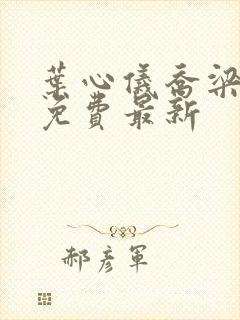 葉心儀喬梁
免費最新
郝彥軍